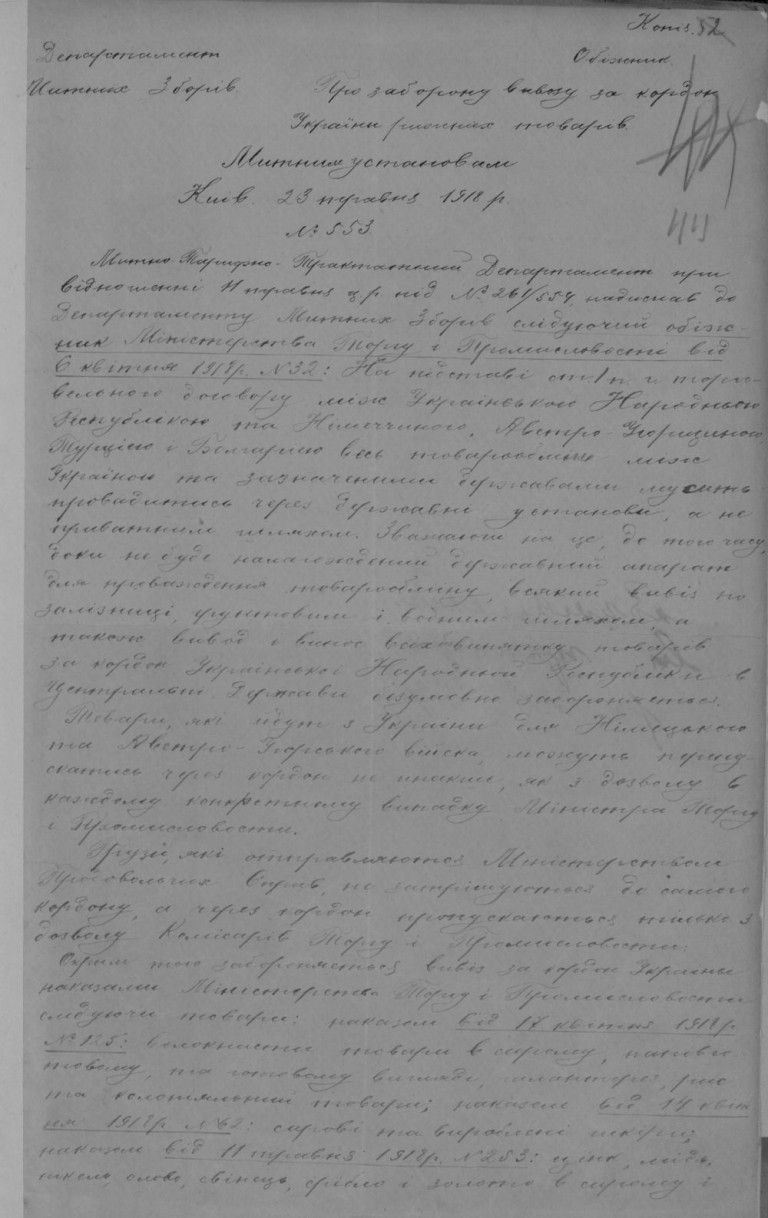 Копія. 52
Департамент
Обіжник
Митних Зборів.
Про заборону вивозу за кордон
України ріжних товарів.
Митним установам
Київ. 23 травня 1918 р.
№ 553.
Митно-Тарифно-Трактатний Департамент при
відношенні 11 травня ц.р. під № 261/554, надислав до
Департаменту Митних Зборів слідуючий обіж-
ник Міністерства Торгу і Промисловості від
6 квітня 1918 р. № 32: На підставі ст. 1 п. торго-
вельного договору між Українською Народньою
Республікою та Німеччиною, Австро-Угорщиною,
Турцією і Болгарією весь товарообмін між
Україною та зазначеними державами мусить
провадитись через державні установи, а не
приватним шляхом. Зважаючи на це, до того часу,
доки не буде налагоджений державний апарат
для провадження товарообміну, всякий вивіз по
залізниці, ґрунтовим і водним шляхом, а
також вивод і винос всіх без винятку товарів
за кордон Української Народньої Республіки в
Центральні Держави безумовно забороняється.
Товари, які йдуть з України для Німецького
та Австро-Угорського війська, можуть перепу-
скатись через кордон не инакше, як з дозволу в
кождому конкретному випадку Міністра Торгу
і Промисловости.
Грузи, які отправляються Міністерством
Продовольчих Справ, не затрімуються до самого
кордону, а через кордон пропускаються тільки з
дозволу Комісарів Торгу і Промисловости.
Окрім того забороняється вивіз за кордон України
наказами Міністерства Торгу і Промисловости
слідуючи товари: наказом від 17 квітня 1918 р.
№ 125: волокнисти товари в сирому, напівго-
товому, та готовому вигляді, галантерея, рис
та колоніяльний товари; наказом від 14 квіт-
ня 1918 р. № 62: сирові та вироблені шкіри;
наказом від 11 травня 1918 р. № 253: цінк, мідь,
нікель, олово, свінець, срібло і золото в сирому і